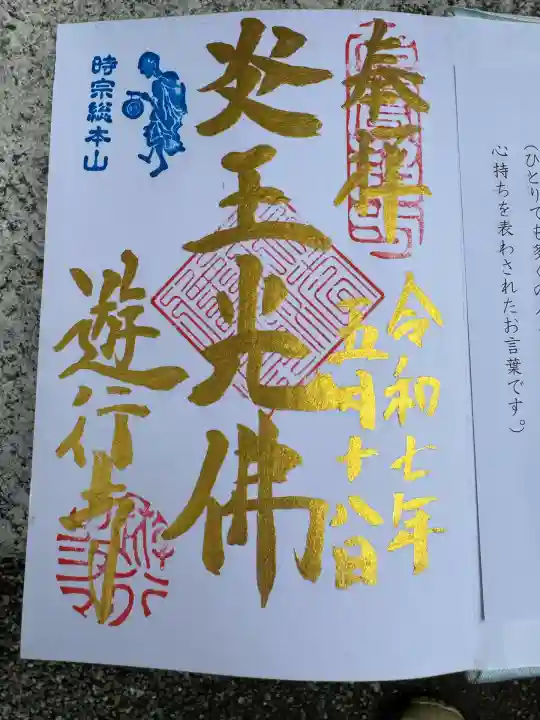 (ひとりでも多くの人
心持ちを表わされたお言葉です。)
奉拝
令和七年
五月十八日
炎王光佛
時宗総本山
遊行寺